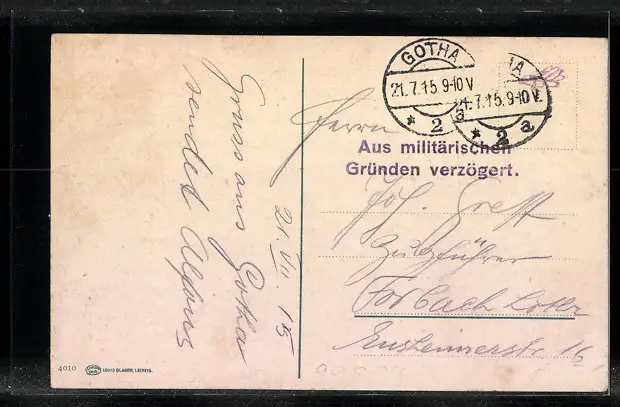 Gruss aus Gotha
sendet Alfons
21. VII. 15
GOTHA
21.7.15 9-10 V.
* 2 a
HA
21.7.15.9-10V.
* 2 a
Aus militärischen
Gründen verzögert.
Herrn
Jos.
Zugführer
Forbach Lothr
16
4010
LOUIS GLASER, LEIPZIG.